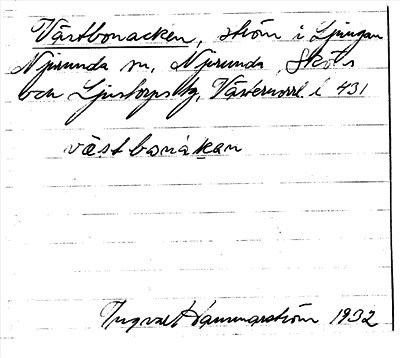 Västbonacken, ström i Ljungan
Njurunda sn, Njurunda, Sköts
och Ljustorps tg, Västernorrl. l 431
västbonakan
Ingvar Hammarström 1932